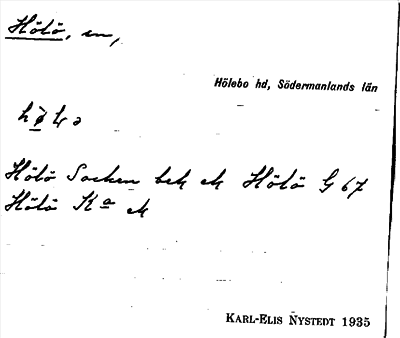 Hölö, sn,
Hölebo hd, Södermanlands län
Hölö Socken bek ek Hölö G 67
Hölö Ka ek
KARL-ELIS NYSTEDT 1935